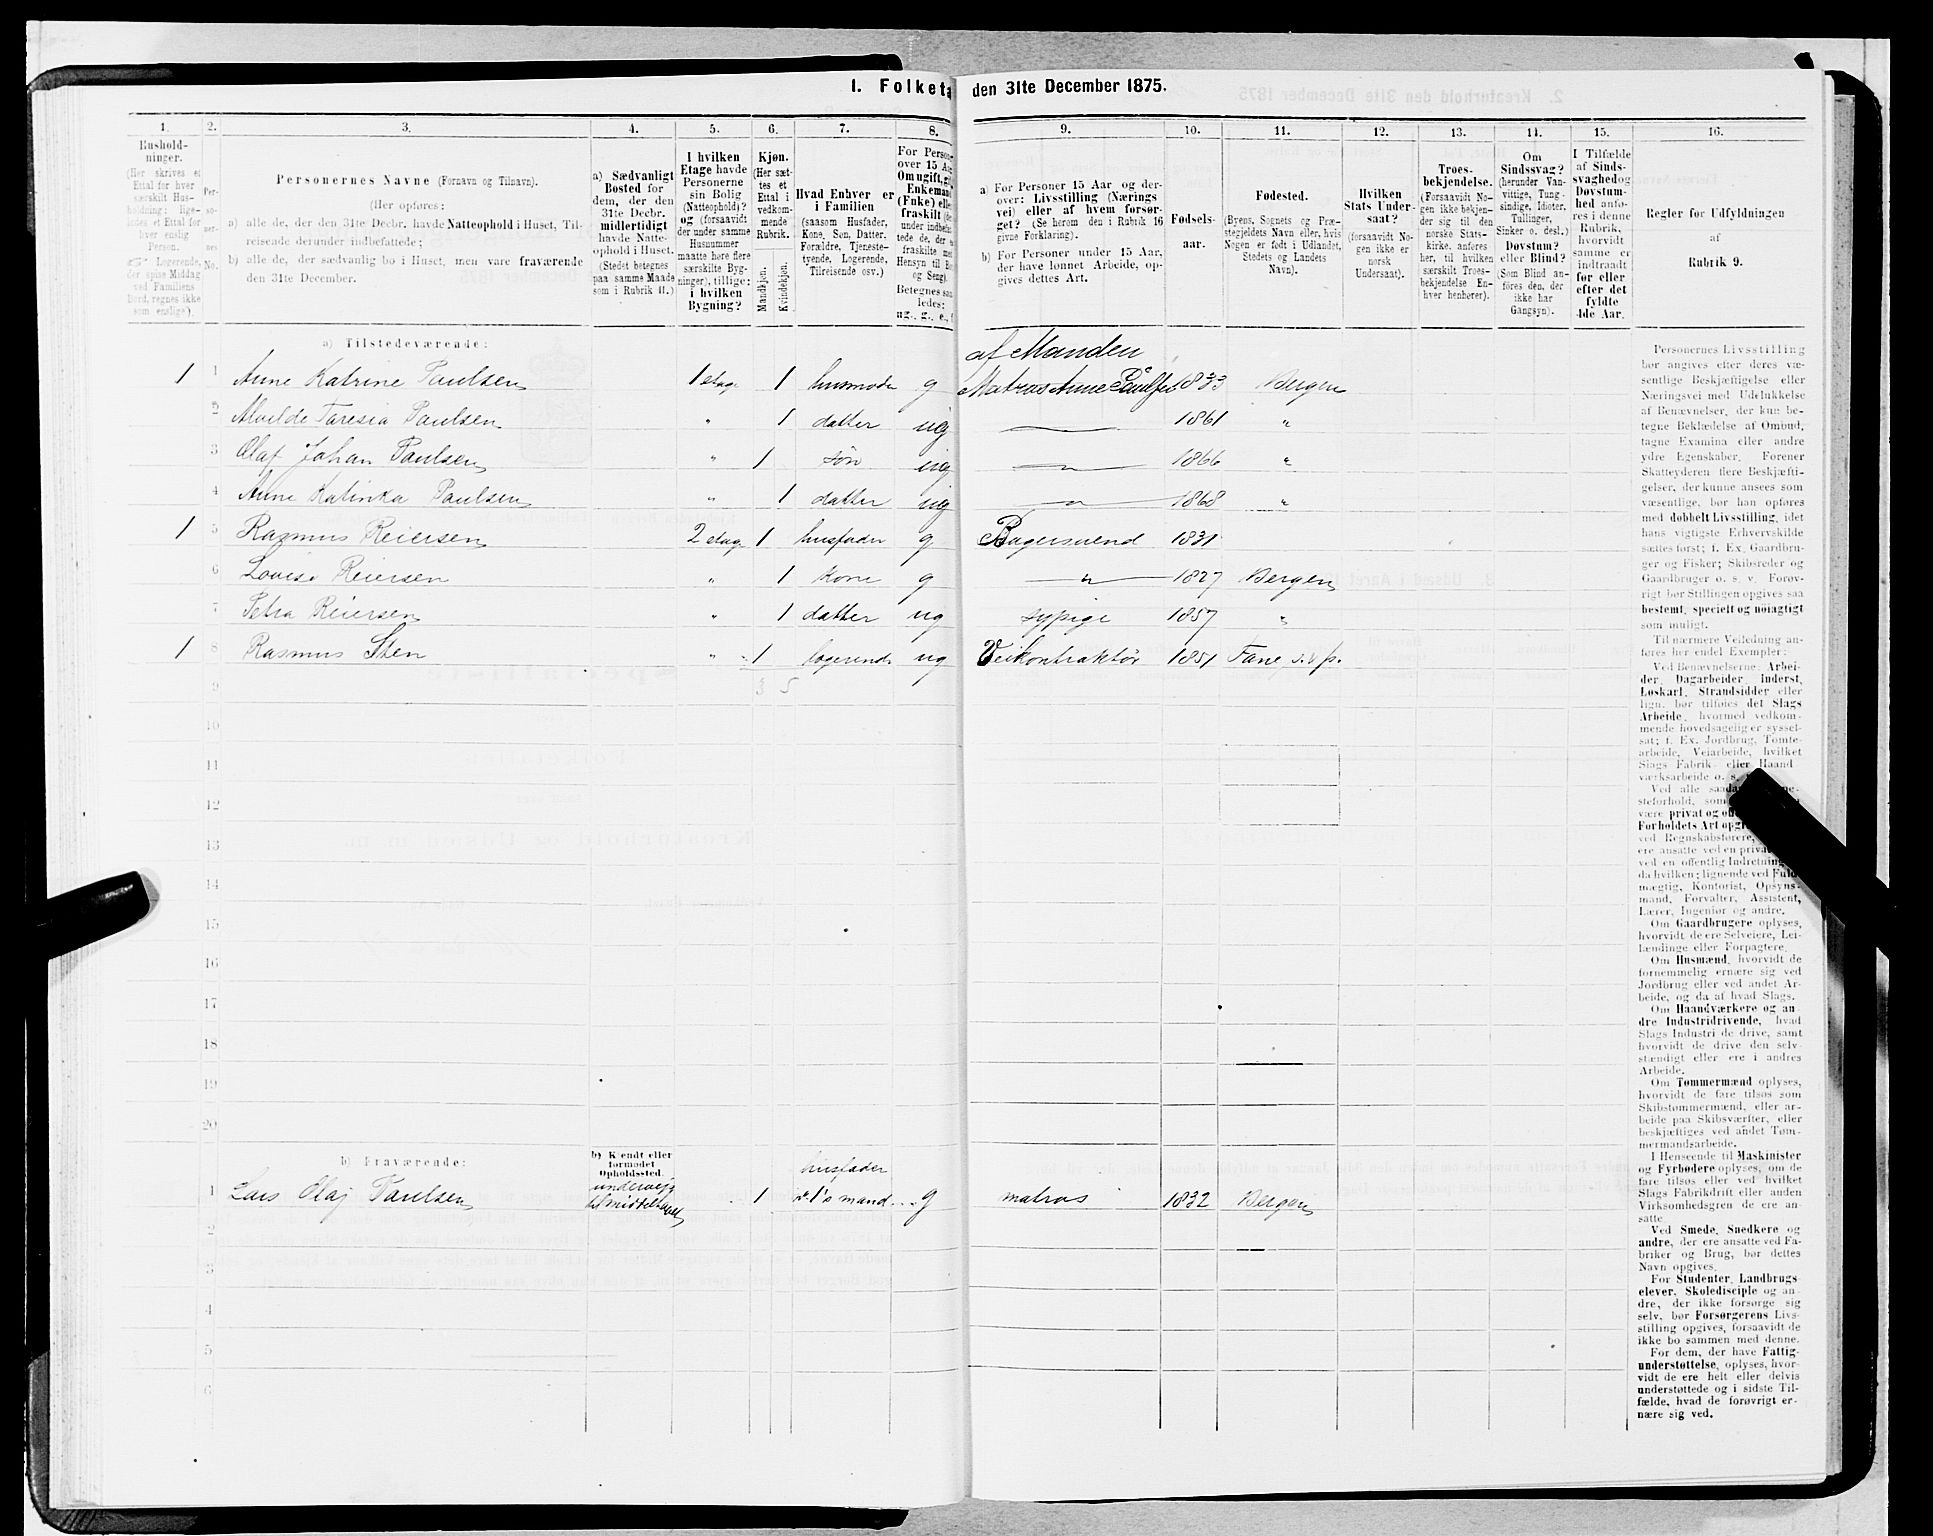 1. Folketæ
den 31te December 1875.
1.
2.
3.
4.
5.
6.
7.
8.
9.
10.
11.
12.
13.
14.
15.
16.
Hushold-
ninger.
(Her skrives et
Ettal for hver
særskilt Hus-
holdning; lige-
ledes et Ettal for
hver enslig
Person.
☞ Logerende,
der spise Middag
ved Familiens
Bord, regnes ikke
som enslige).
Per-
so-
ner-
nes
No.
Personernes Navne (Fornavn og Tilnavn).
(Her opføres:
a) alle de, der den 31te Decbr. havde Natteophold i Huset, Til-
reisende derunder indbefattede;
b) alle de, der sædvanlig bo i Huset, men vare fraværende
den 31te December.
a) Sædvanligt
Bosted for
dem, der den
31te Decbr.
midlertidigt
havde Natte-
ophold i Huset.
(Stedet betegnes
paa samme Maade
som i Rubrik 11.)
I hvilken
Etage havde
Personerne
sin Bolig
(Natteophold)?
og (forsaavidt
der under samme
Husnummer
maatte høre flere
særskilte Byg-
ninger), tillige:
i hvilken
Bygning?
Kjøn.
(Her sæt-
tes et
Ettal i
vedkom-
mende
Rubrik.
Mandkjøn.
Kvindekjøn.
Hvad Enhver er
i Familien
(saasom Husfader,
Kone, Søn, Datter,
Forældre, Tjeneste-
tyende, Logerende,
Tilreisende osv.)
For Person-
over 15 Aa
Om ugift, gi
Enkemand
(Enke) elle
fraskilt
under indbefat-
tede de, der
fraskilte med
Hensyn til Bo
og Seng).
Betegnes saa
ledes:
ug., g., e.,
a) For Personer 15 Aar og der-
over: Livsstilling (Nærings
vei) eller af hvem forsør-
get? (Se herom den i Rubrik 16
givne Forklaring).
b) For Personer under 15 Aar,
der have lønnet Arbeide, op-
gives dettes Art.
Fødsels-
aar.
Fødested.
(Byens, Sognets og Præ-
stegjeldets Navn eller, hvis
Nogen er født i Udlandet,
Stedets og Landets
Navn).
Hvilken
Stats Under-
saat?
(forsaavidt No-
gen ikke er
norsk
Undersaat).
Troes-
bekjendelse.
(Forsaavidt No-
gen ikke bekjen-
der sig til den
norske Stats-
kirke, anføres
her, til hvilken
særskilt Troes-
bekjendelse En-
hver henhører).
Om
Sindssvag?
(herunder Van-
vittige, Tung-
sindige, Idioter,
Tullinger,
Sinker o. desl.)
Døvstum?
eller Blind?
(Som Blind an-
føres den, der
ikke har
Gangsyn).
I Tilfælde
af Sinds-
svaghed og
Døvstum-
hed anfø-
res i denne
Rubrik,
hvorvidt
samme er
indtraadt
før eller
efter det
fyldte
4de Aar.
Regler for Udfyldningen
af
Rubrik 9.
a) Tilstedeværende:
af Manden
1 1 Anne Katrine Paulsen 1 etage 1 husmoder g Matros Anne Paulsen 1833 Bergen
2 Alvilde Taresia Paulsen " 1 datter ug 1861 "
3 Olaf Johan Paulsen " 1 søn ug " 1866 "
4 Anne Katinka Paulsen " 1 datter ug " 1868 "
1 5 Rasmus Reiersen 2 etage 1 husfader g Bagersvend 1831
6 Lovise Reiersen " 1 kone g " 1827 Bergen
7 Petra Reiersen " 1 datter ug sypige 1857 "
1 8 Rasmus Sten " 1 logerende ug Veikontraktør 1851 Fane s. & p.
9 3 5
10
11
12
13
14
15
16
17
18
19
20
b) Fraværende:
b) Kjendt eller
formodet
Opholdssted.
1 Lars Olaj Paulsen underveis til middelhavet 1 husfader No 1's mand g matros 1832 Bergen
2
3
4
5
6
Personernes Livsstilling
bør angives efter deres væ-
sentlige Beskjæftigelse eller
Næringsvei med Udelukkelse
af Benævnelser, der kun be-
tegne Beklædelse af Ombud,
tagne Examina eller andre
ydre Egenskaber. Forener
Skatteyderen flere Beskjæfti-
gelser, der kunne ansees som
væsentlige, bør han opføres
med dobbelt Livsstilling, idet
hans vigtigste Erhvervskilde
sættes først; f. Ex. Gaardbru-
ger og Fisker; Skibsreder og
Gaardbruger o. s. v. Forøv-
rigt bør Stillingen opgives saa
bestemt, specielt og nøiagtigt
som muligt.
Til nærmere Veiledning an-
føres her endel Exempler:
Ved Benævnelserne: Arbei-
der, Dagarbeider, Inderst,
Løskarl, Strandsidder eller
lign. bør tilføies det Slags
Arbeide, hvormed vedkom-
mende hovedsagelig er syssel-
sat; f. Ex. Jordbrug, Tomte-
arbeide, Veiarbeide, hvilket
Slags Fabrik- eller Haand-
værksarbeide o. s.
Ved alle saada
steforhold, som
være privat og
Forholdets Art opgi
ved Regnskabsførere,
ere ansatte ved en priva
ved en offentlig Indretning
da hvilken; lignende ved Fuld-
mægtig, Kontorist, Opsyns-
mand, Forvalter, Assistent,
Lærer, Ingeniør og andre.
Om Gaardbrugere oplyses,
hvorvidt de ere Selveiere, Lei-
lændinge eller Forpagtere.
Om Husmænd, hvorvidt de
fornemmelig ernære sig ved
Jordbrug eller ved andet Ar-
beide, og da af hvad Slags.
Om Haandværkere og an-
dre Industridrivende, hvad
Slags Industri de drive, samt
hvorvidt de drive den selv-
stændigt eller ere i andres
Arbeide.
Om Tømmermænd oplyses,
hvorvidt de fare tilsøs som
Skibstømmermænd, eller ar-
beide paa Skibsværfter, eller
beskjæftiges ved andet Tøm-
mermandsarbeide.
I Henseende til Maskinister
og Fyrbødere oplyses, om de
fare tilsøs eller ved hvilket
Slags Fabrikdrift eller anden
Virksomhedsgren de ere an-
satte
Ved Smede, Snedkere og
andre, der ere ansatte ved Fa-
briker og Brug, bør dettes
Navn opgives.
For Studenter, Landbrugs-
elever, Skoledisciple og an-
dre, der ikke forsørge sig
selv, bør Forsørgerens Livs-
stilling opgives, forsaavidt de
ikke bo sammen med denne.
For dem, der have Fattig-
understøttelse, oplyses, hvor-
vidt de ere helt eller delvis
understøttede og i sidste Til-
fælde, hvad de forøvrigt er-
nære sig ved.